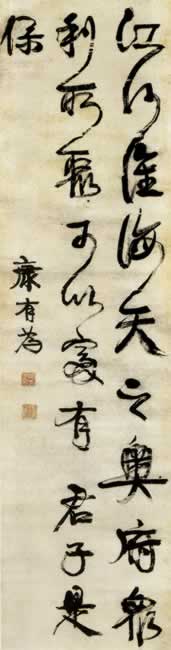 江河淮海天之奧府眾
利所聚可以富有君子是
保
康有為